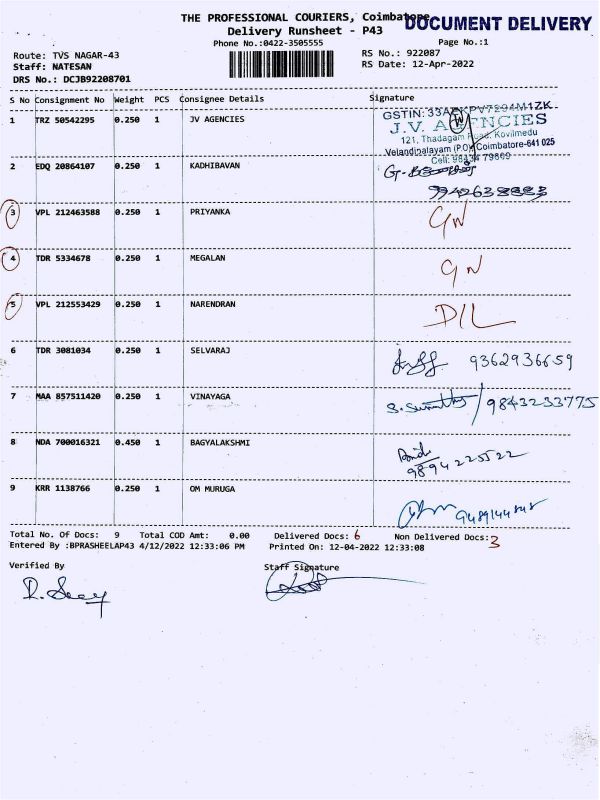 THE PROFESSIONAL COURIERS, Coimbatore
DOCUMENT DELIVERY
Delivery Runsheet - P43
Phone No.:0422-3505555
Page No.:1
Route: TVS NAGAR-43
RS No.: 922087
Staff: NATESAN
RS Date: 12-Apr-2022
DRS No.: DCJB92208701
S No Consignment No Weight PCS Consignee Details Signature
1 TRZ 50542295 0.250 1 JV AGENCIES
J.V. AGENCIES
121, Thadagam Road, Kovilmedu
Velandipalayam (P.O) Coimbatore-641 025
2 EDQ 20864107 0.250 1 KADHIBAVAN
3 VPL 212463588 0.250 1 PRIYANKA GN
4 TDR 5334678 0.250 1 MEGALAN GN
5 VPL 212553429 0.250 1 NARENDRAN D/L
6 TDR 3081034 0.250 1 SELVARAJ 9362936659
7 MAA 857511420 0.250 1 VINAYAGA 9843233775
8 NDA 700016321 0.450 1 BAGYALAKSHMI
9894225522
9 KRR 1138766 0.250 1 OM MURUGA
Total No. Of Docs: 9 Total COD Amt: 0.00 Delivered Docs: 6 Non Delivered Docs: 3
Entered By :BPRASHEELAP43 4/12/2022 12:33:06 PM Printed On: 12-04-2022 12:33:08
Verified By Staff Signature